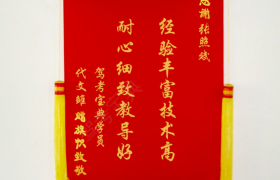 感谢张照斌
经验丰富技术高
耐心细致教导好
驾考宝典学员
代文雄赠旗帜致敬